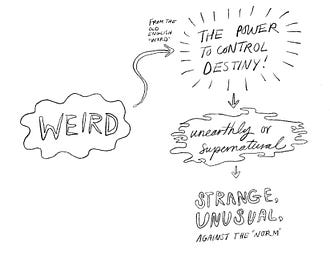 WEIRD
FROM THE
OLD
ENGLISH
"WYRD"
THE POWER
TO CONTROL
DESTINY!
unearthly or
supernatural
STRANGE,
UNUSUAL,
AGAINST THE "NORM"